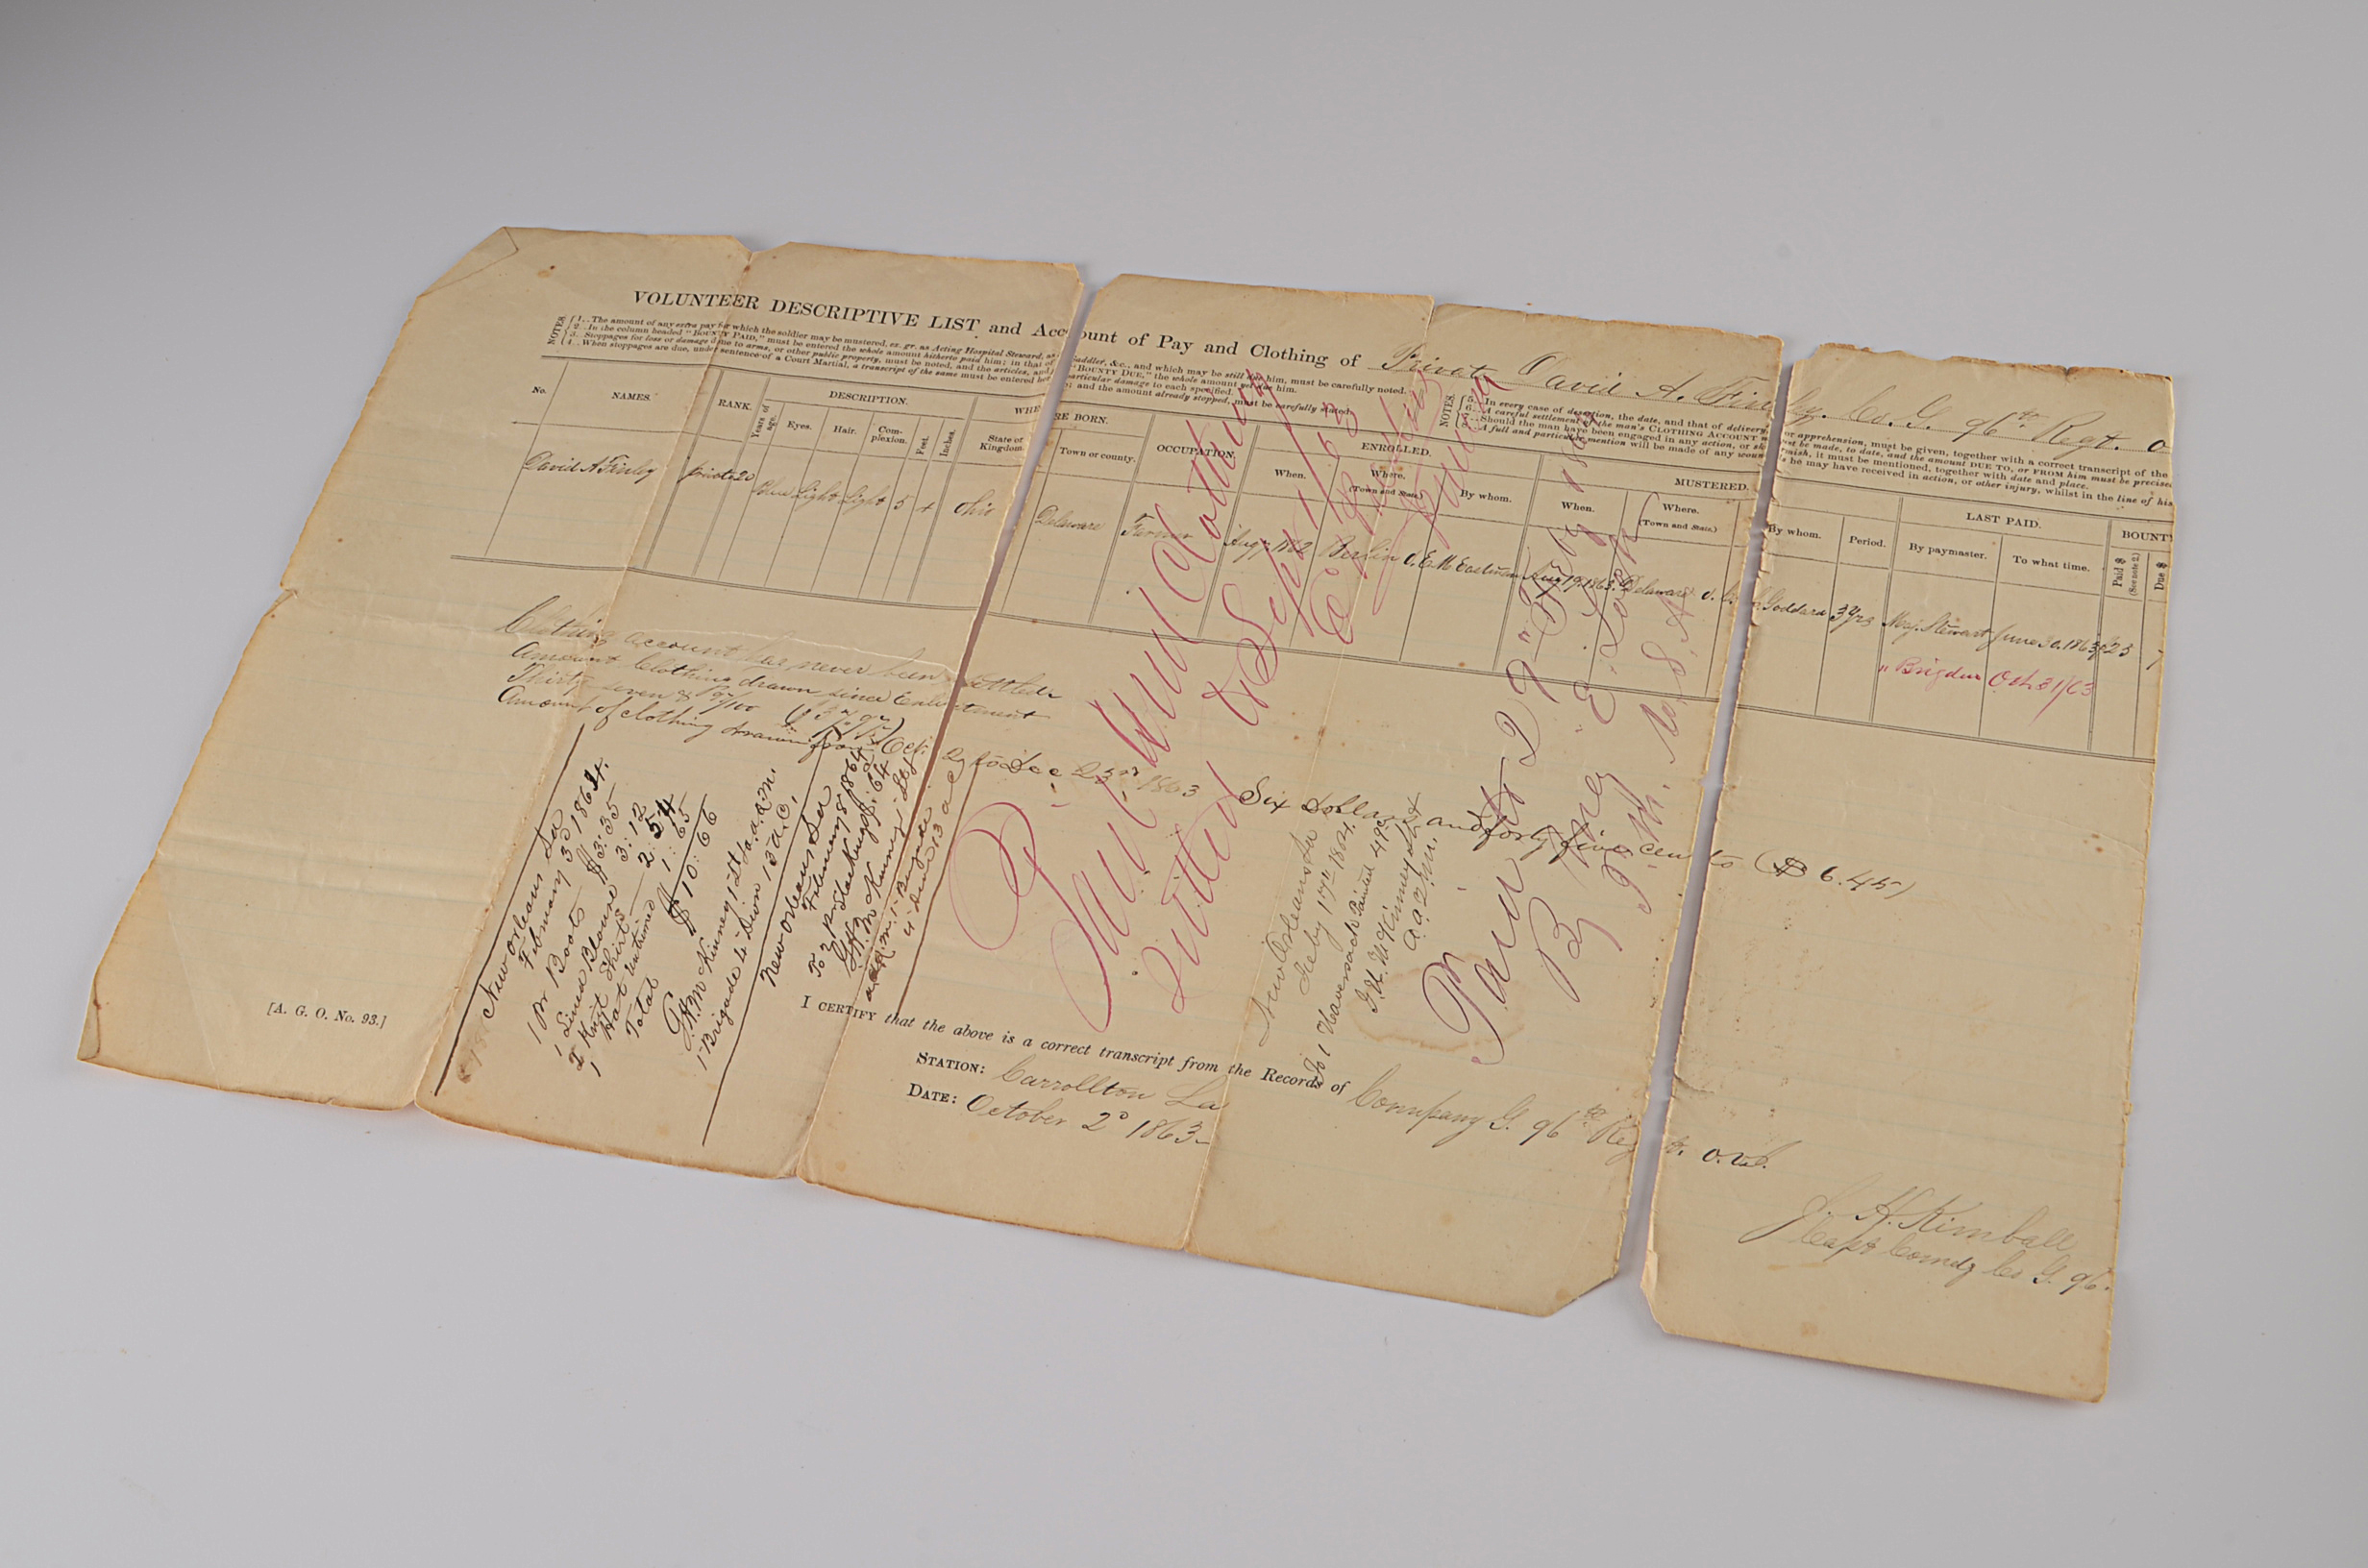 VOLUNTEER DESCRIPTIVE LIST and Account of Pay and Clothing of Private David A. Finley. Co. G. 96th Regt. O
NOTES.
1..The amount of any extra pay for which the soldier may be mustered, ex. gr. as Acting Hospital Steward, as Saddler, &c., and which may be still due him, must be carefully noted.
2..In the column headed "BOUNTY PAID," must be entered the whole amount hitherto paid him; in that of "BOUNTY DUE," the whole amount yet due him.
3..Stoppages for loss or damage done to arms, or other public property, must be noted, and the articles, and particular damage to each specified.
4..When stoppages are due, under sentence of a Court Martial, a transcript of the same must be entered here; and the amount already stopped, must be carefully stated.
NOTES.
5..In every case of desertion, the date, and that of delivery, or apprehension, must be given, together with a correct transcript of the
6..A careful settlement of the man's CLOTHING ACCOUNT must be made, to date, and the amount DUE TO, or FROM him must be precise
7..Should the man have been engaged in any action, or it must be mentioned, together with date and place.
A full and particular mention will be made of any wounds he may have received in action, or other injury, whilst in the line of his
No. NAMES. RANK. DESCRIPTION. WHERE BORN. OCCUPATION. ENROLLED. MUSTERED. LAST PAID. BOUNTY
Years of age. Eyes. Hair. Complexion. Feet. Inches. State or Kingdom. Town or county. When. Where. (Town and State.) By whom. When. Where. (Town and State.) By whom. Period. By paymaster. To what time. Paid $ (See note 2.) Due $
David A Finley private 20 Blue Light Light 5 4 Ohio Delaware Farmer Aug 1862 Berlin O. E. M. Eastman Aug 19, 1863 Delaware O. Goddard 3 yrs Maj. Stewart June 30, 1863 $25
" Brigden Oct 31/63
Clothing account has never been settled
Amount Clothing drawn since Enlistment
Thirty seven & 92/100 ($37.92)
Amount of clothing drawn from Oct. 2, to Dec 25th 1863 Six dollars and forty five cents ($6.45)
New Orleans La
February 3d 1864.
1 Pr Boots $3:35
1 Lined Blouse 3.12
2 Knit Shirts 2:54
1 Hat untrimed 1:65
Total $10:66
G.H. McKinney 1st Lt. a.a.Q.M.
1 Brigade 4 Divn 13 A.C.
New Orleans La
February 8 1864
To 2 pr Stockings 64
G.H. McKinney Lt
a.a.Q.M. 1 Brigade
4 divn 13 a.c.
Paid
Clothing
settled to Sept 1/63
New Orleans La
Feby 17th 1864.
To 1 Haversack Painted 49c
G.H. McKinney Lt
a.a.Q.M.
Paid 29" Feby 1864
By me
P. M. U.S.A
[A. G. O. No. 93.]
I CERTIFY that the above is a correct transcript from the Records of Company G. 96th Regt. O.V.I.
STATION: Carrollton La
DATE: October 2d 1863
J. H. Kimball
Capt Comdg Co G. 96.